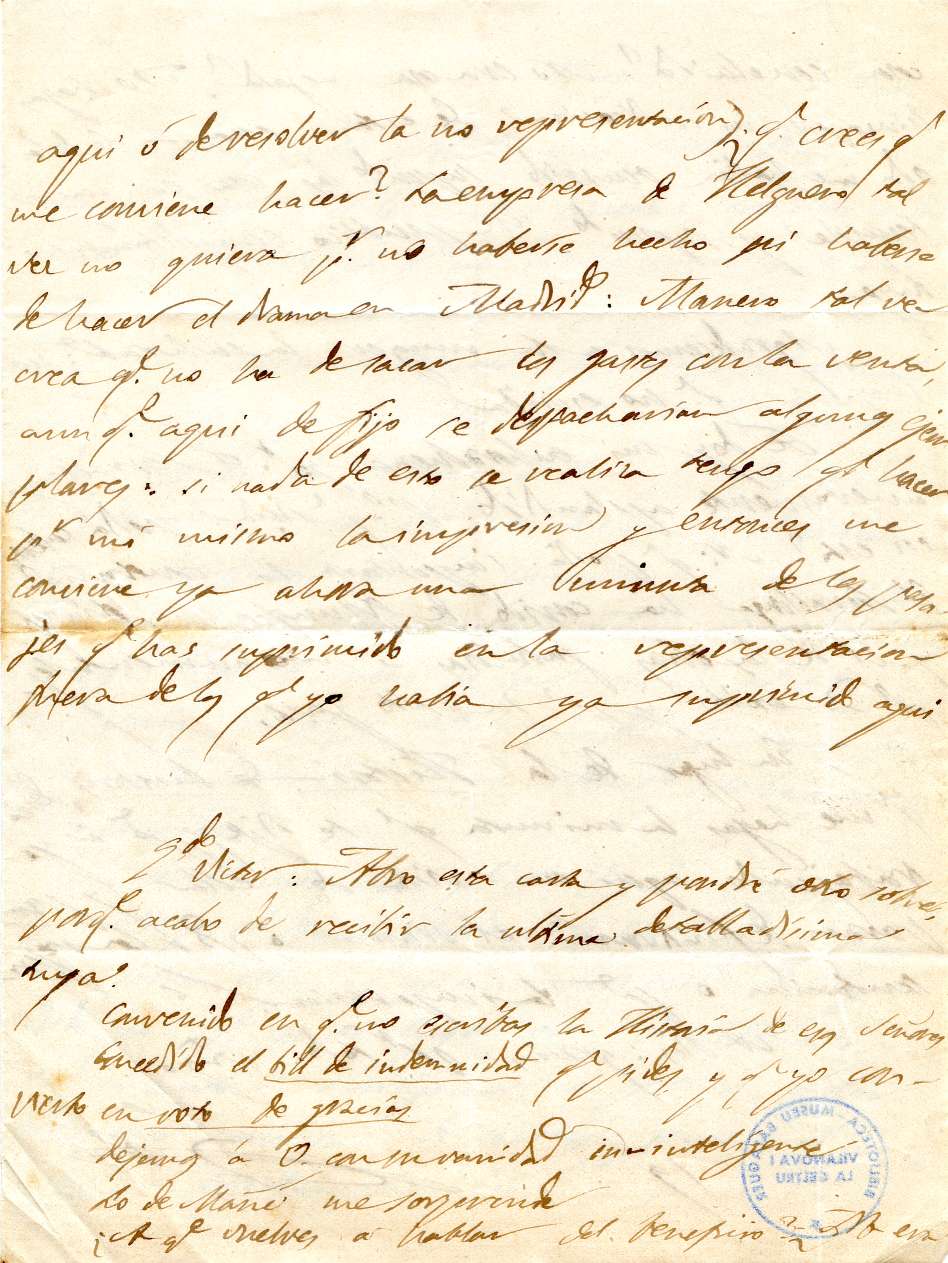 aqui ó de resolver la no representación). q.e crees q.e
me conviene hacer? La empresa de Helguero tal
vez no quiera p.r no haberse hecho ni haberse
de hacer el drama en Madrid: Manero tal vez
crea q.e no ha de sacar los gastos con la venta,
aunq.e aqui de fijo se despacharian algunos ejem
plares: si nada de esto se realiza tengo q.e hacer
p.r mi mismo la impresion y entonces me
conviene ya ahora una minuta de los pasa
jes q.e has suprimido en la representacion
fuera de los q.e yo habia ya suprimido aqui
Q.do Victor: Abro esta carta y pondré otro sobre,
porq.e acabo de recibir la ultima detalladísima
tuya.
Convenido en q.e no escribas la Historia de esos Señores
Concedido el bill de indemnidad q.e pides y q.e yo con-
vierto en voto de gracias
dejemos á O. con su vanidad in-inteligente
Lo de Mañé me sorprende
¿A q.e vuelves á hablar del beneficio? era
BIBLIOTECA MUSEU BALAGUER
VILANOVA I
LA GELTRU